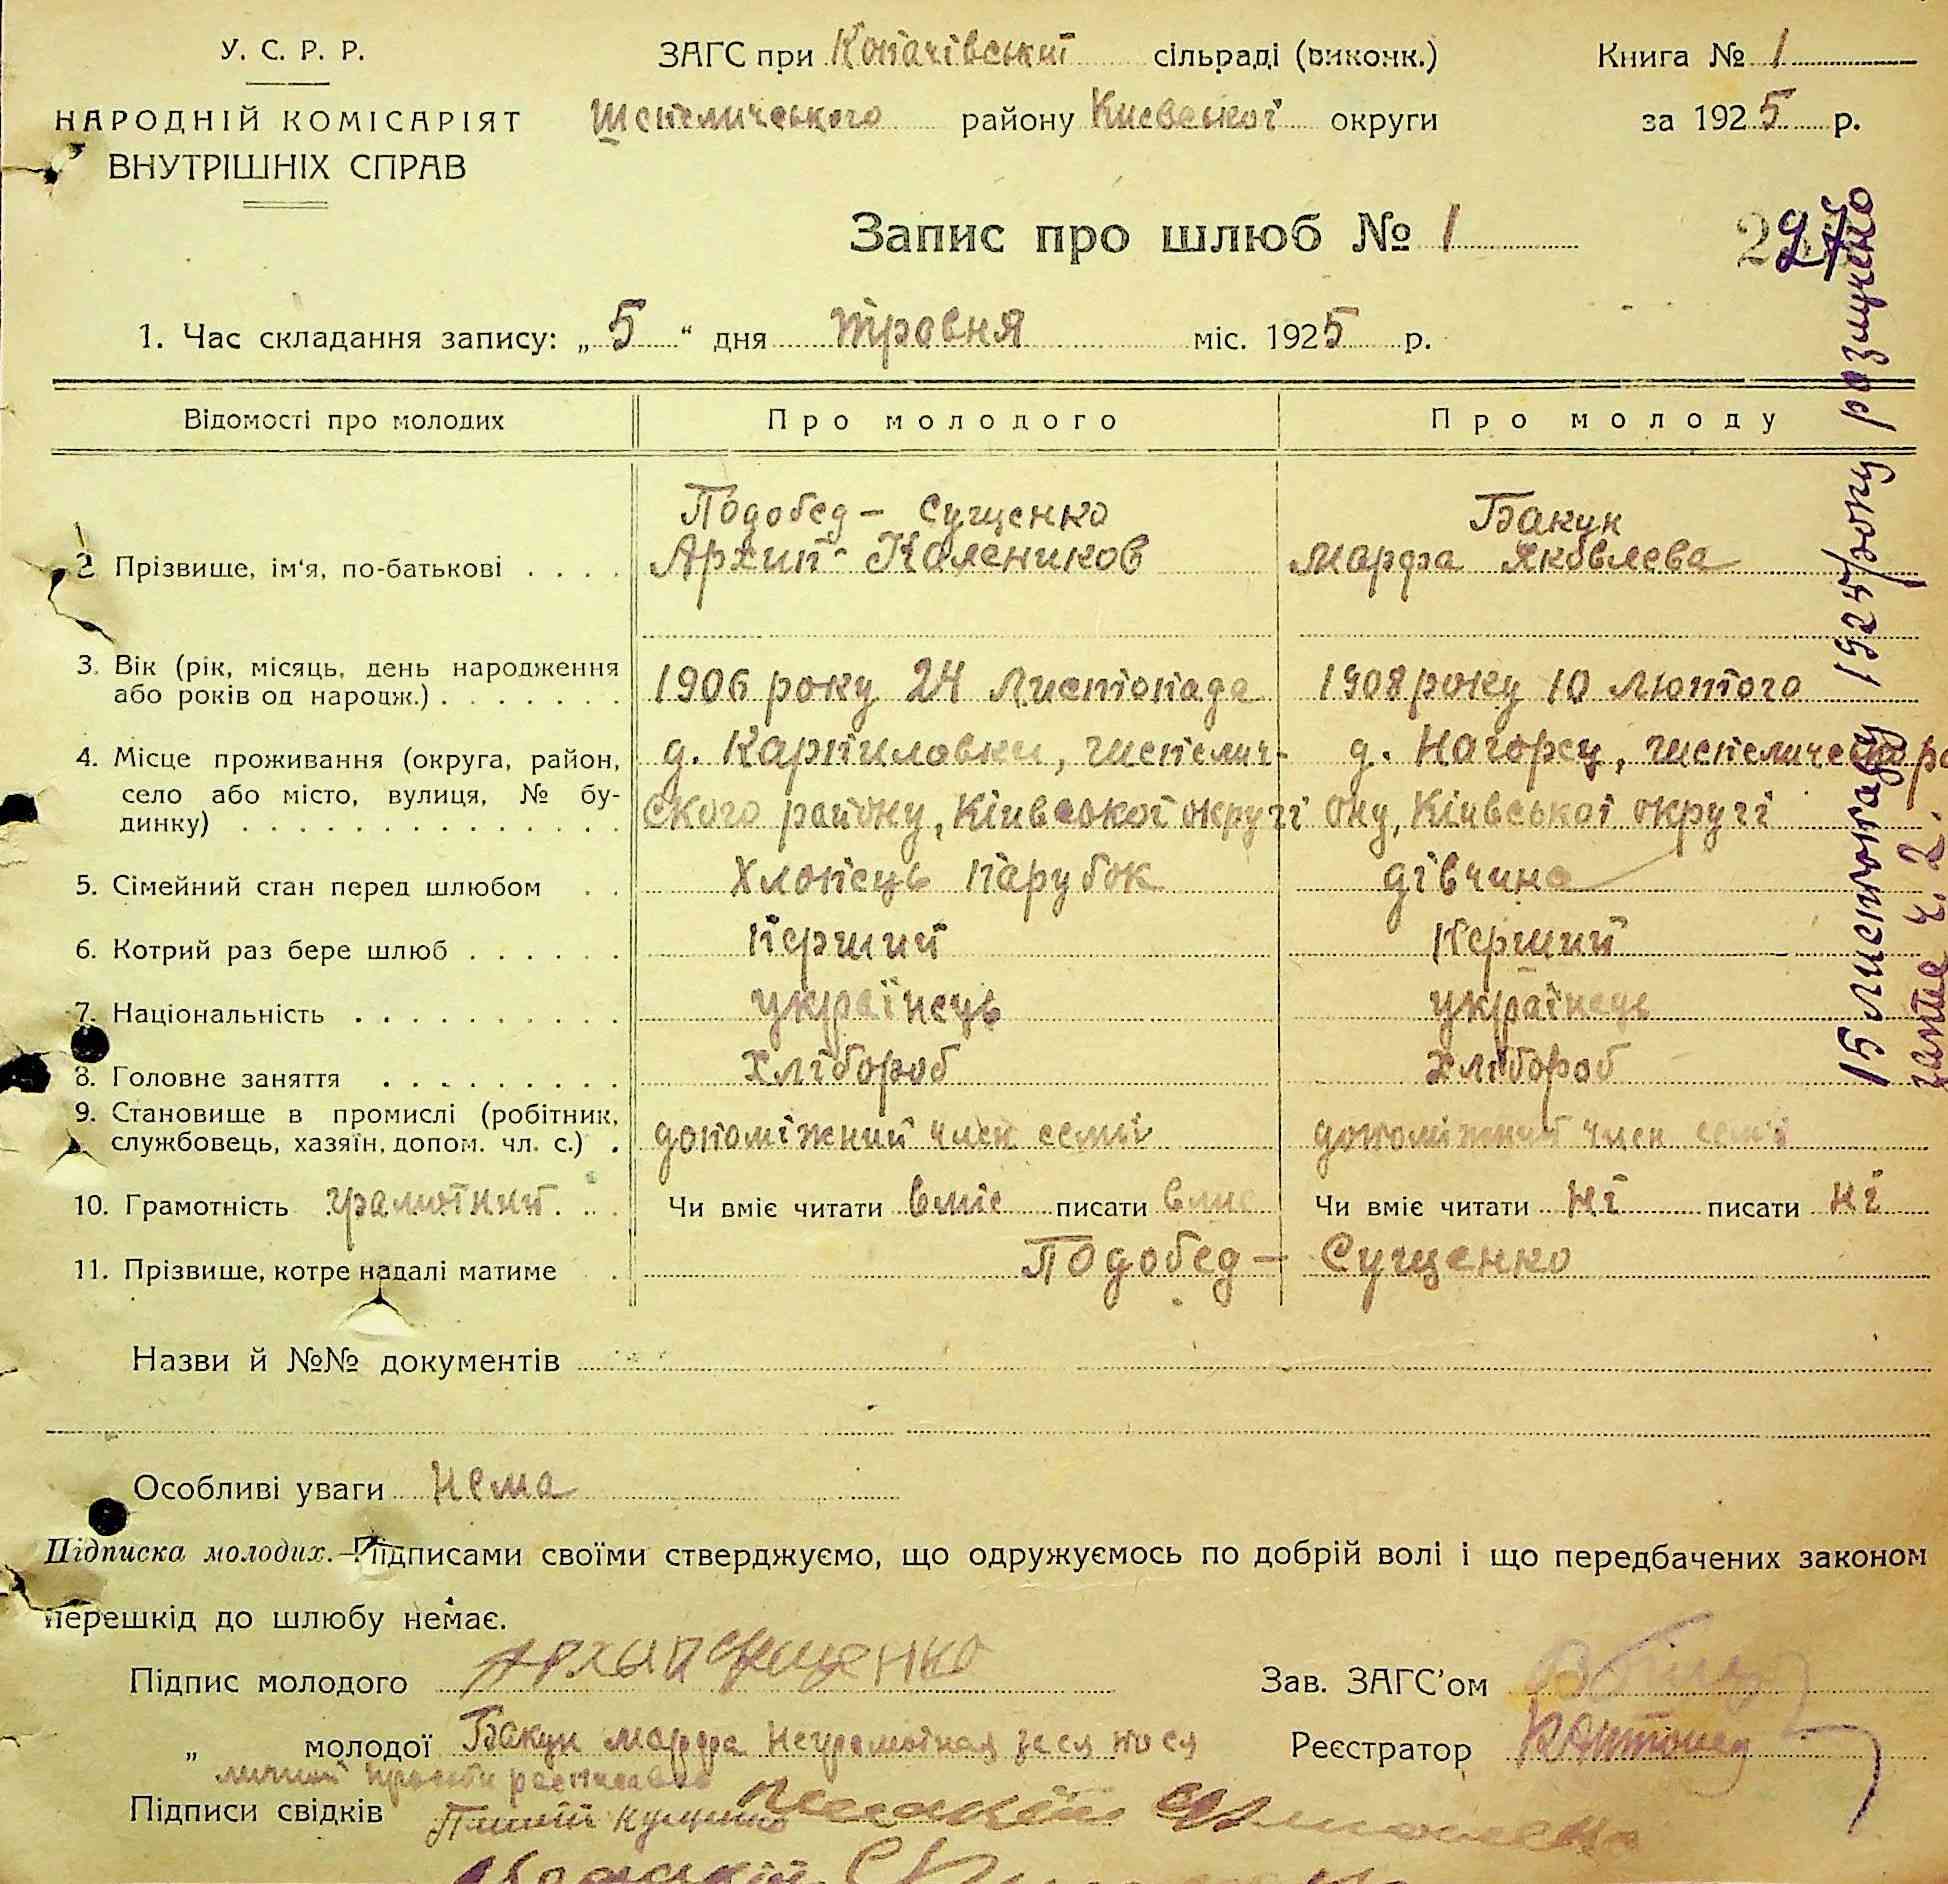 У. С. Р. Р.
НАРОДНІЙ КОМІСАРІЯТ
ВНУТРІШНІХ СПРАВ
ЗАГС при Копачівській сільраді (виконк.)
Шепеличського району Киевської округи
Книга № 1
за 1925 р.
Запис про шлюб № 1
297
1. Час складання запису: „5“ дня травня міс. 1925 р.
Відомості про молодих Про молодого Про молоду
Подобед - Сущенко Бакун
2 Прізвище, ім'я, по-батькові . . . . Архип Калеников Марфа Яковлева
3. Вік (рік, місяць, день народження
або років од народж.) . . . . . . . 1906 року 24 Листопада 1908 року 10 Лютого
4. Місце проживання (округа, район,
село або місто, вулиця, № бу-
динку) . . . . . . . . . . . . . .
д. Карпиловки, шепелич-
ского району, Кіивської округі
д. Нагорец, шепелическ
ону, Кіивської округі
5. Сімейний стан перед шлюбом . . Хлопець парубок дівчина
6. Котрий раз бере шлюб . . . . . . Перший Перший
7. Національність . . . . . . . . . . українець українець
8. Головне заняття . . . . . . . . . Хлібороб Хлібороб
9. Становище в промислі (робітник,
службовець, хазяїн, допом. чл. с.) . допоміжний член семьї допоміжний член семьї
10. Грамотність грамотний . . . Чи вміє читати вміє писати вміє Чи вміє читати ні писати ні
11. Прізвище, котре надалі матиме . Подобед - Сущенко
Назви й №№ документів
Особливі уваги нема
Підписка молодих.—Підписами своїми стверджуємо, що одружуємось по добрій волі і що передбачених законом
перешкід до шлюбу немає.
Підпис молодого Архип Сущенко
Зав. ЗАГС'ом
„ молодої Бакун Марфа неграмотная
личной просьби
Реєстратор
Підписи свідків
15 листопаду 1925 року розлучено
запис ч. 2.